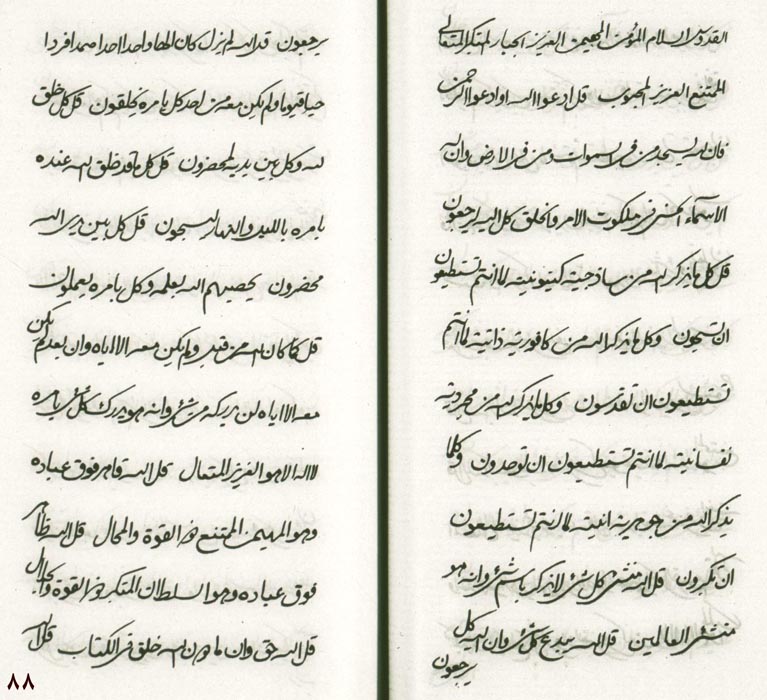 القدوس السلام المؤمن المهيمن العزيز الجبار المتكبر المتعالى
الممتنع العزيز المحبوب قل ادعوا الله او ادعوا الرحمن
فان له يسجد من فى السموات ومن فى الارض وان له
الاسماء الحسنى فى ملكوت الامر والخلق كل اليه يرجعون
قل كل ما يذكر الله من ساذجيته كينونيته لا انتم تستطيعون
ان تسبحون وكل ما يذكر الله من كافوريته ذاتيته لا انتم
تستطيعون ان تقدسون وكل ما يذكر الله من مجرديته
نفسانيته لا انتم تستطيعون ان توحدون وكلما
يذكر الله من جوهريته انيته لا انتم تستطيعون
ان تكبرون قل الله منشئ كل شئ لا يذكر باسم شئ وانه لهو
منشئ العالمين قل الله يبدع كل شئ وان اليه كل
يرجعون
يرجعون قل الله لم يزل كان الها واحدا احدا صمدا فردا
حيا قيوما ولم يكن معه من احد كل بامره يخلقون قل كل خلق
لله وكل بين يديه لمحضرون قل كل ما قد خلق الله عنده
بامره بالليل والنهار ليسبحون قل كل بين يدى الله
محضرون يحصيهم الله بعلمه وكل بامره يعملون
قل كما كان الله من قبل ولم يكن معه الا اياه وان بعد لم يكن
معه الا اياه لن يدركه من شئ وانه هو يدرك كل شئ بامره
لا اله الا هو العزيز المتعال قل الله قاهر فوق عباده
وهو المهيمن الممتنع ذو القوة والمحال قل الله ظاهر
فوق عباده وهو السلطان المتكبر ذو القوة والجلال
قل الله حق وان ما دون الله خلق فى الكتاب قل الله
٨٨